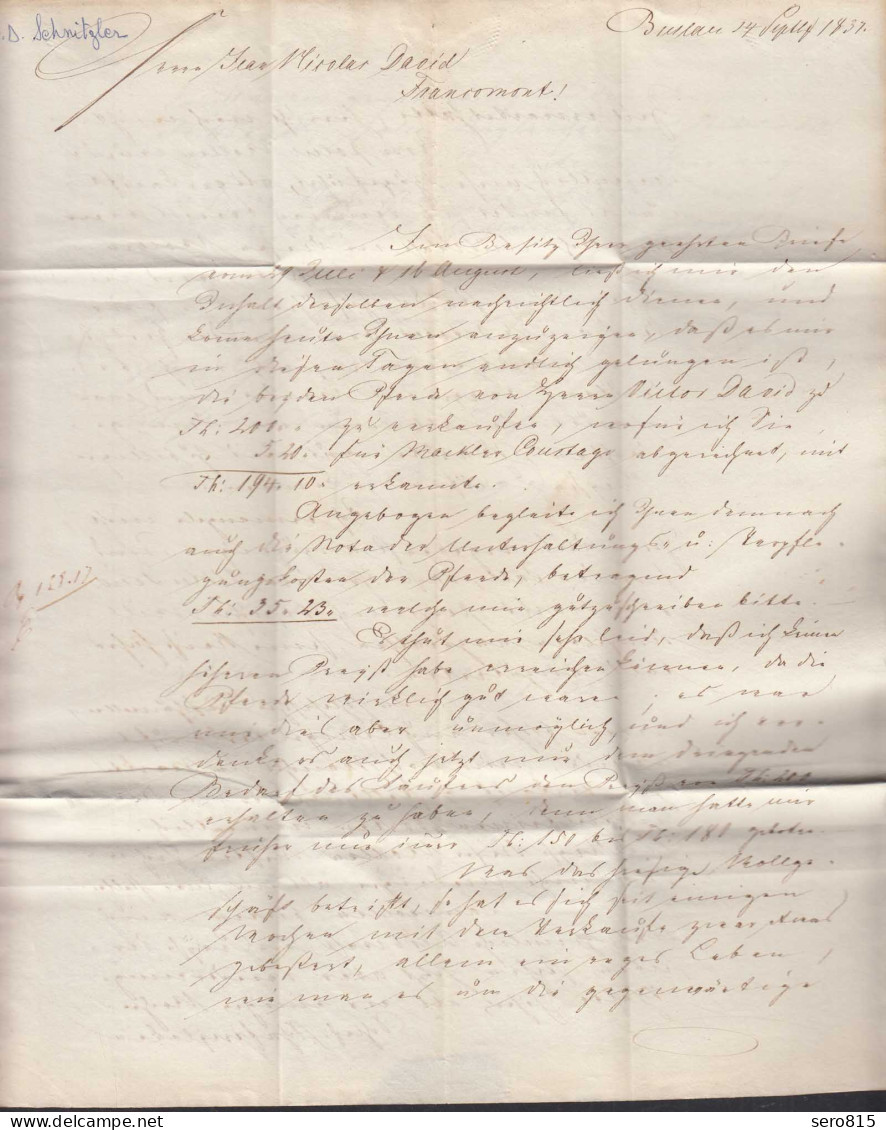 D. Schnitzler
Breslau 14 Septbr 1837.
Herrn Jean Nicolas David
Francomont!
Im Besitz Ihrer geehrten Briefe
vom 29 Juli & 16 August, ließ ich mir den
Inhalt derselben nachrichtlich dienen, und
komme heute Ihnen anzuzeigen, daß es mir
in diesen Tagen endlich gelungen ist,
die beiden Pferde von Herrn Victor David zu
Th: 200 zu verkaufen, wofür ich Sie
" 5.20. für Mackler Courtage abgerechnet, mit
Th: 194. 10. erkannte.
Angebogen begleite ich Ihnen demnach
auch die Nota der Unterhaltungs- u: Verpfle-
gungskosten der Pferde, betragend
Th: 35. 23. welche mir gutzuschreiben bitte.
Es thut mir sehr leid, daß ich keinen
höheren Preiß habe erreichen können, da die
Pferde wirklich gut waren; es war
mir dies aber unmöglich und ich ver-
danke es auch jetzt nur dem dringenden
Bedarf des Käufers den Preiß von Th: 200
erhalten zu haben, denn man hatte mir
früher nur immer Th: 150 bis Th: 180 geboten.
Was das hiesige Wollge-
schäft betrifft, so hat es sich seit einigen
Wochen mit dem Verkaufe zwar etwas
gebessert, allein ein reges Leben,
wie man es um die gegenwärtige
159.17
sero815